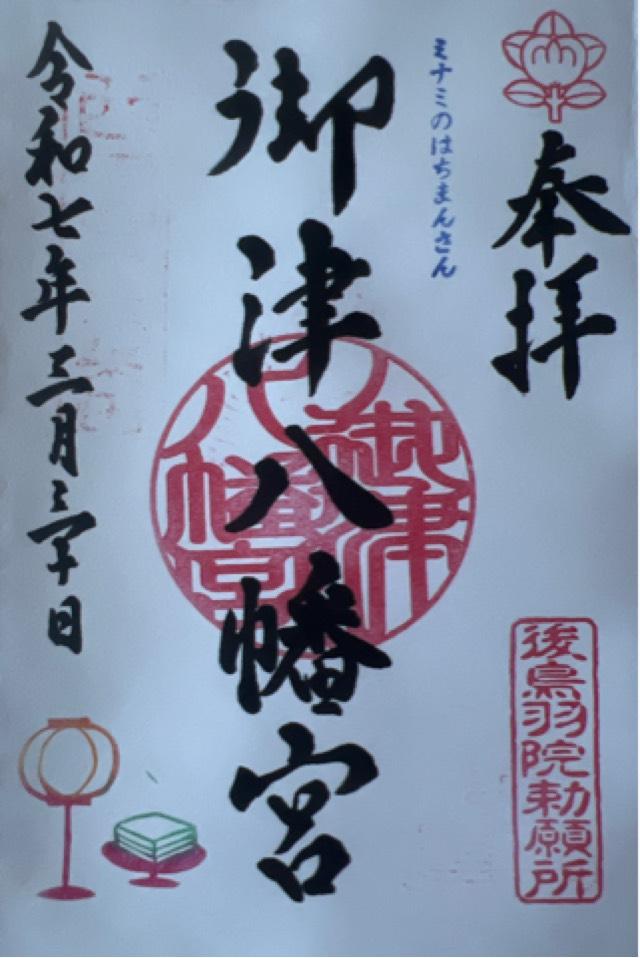 奉拝
後鳥羽院勅願所
ミナミのはちまんさん
御津八幡宮
御津
八幡宮
令和七年三月三十日